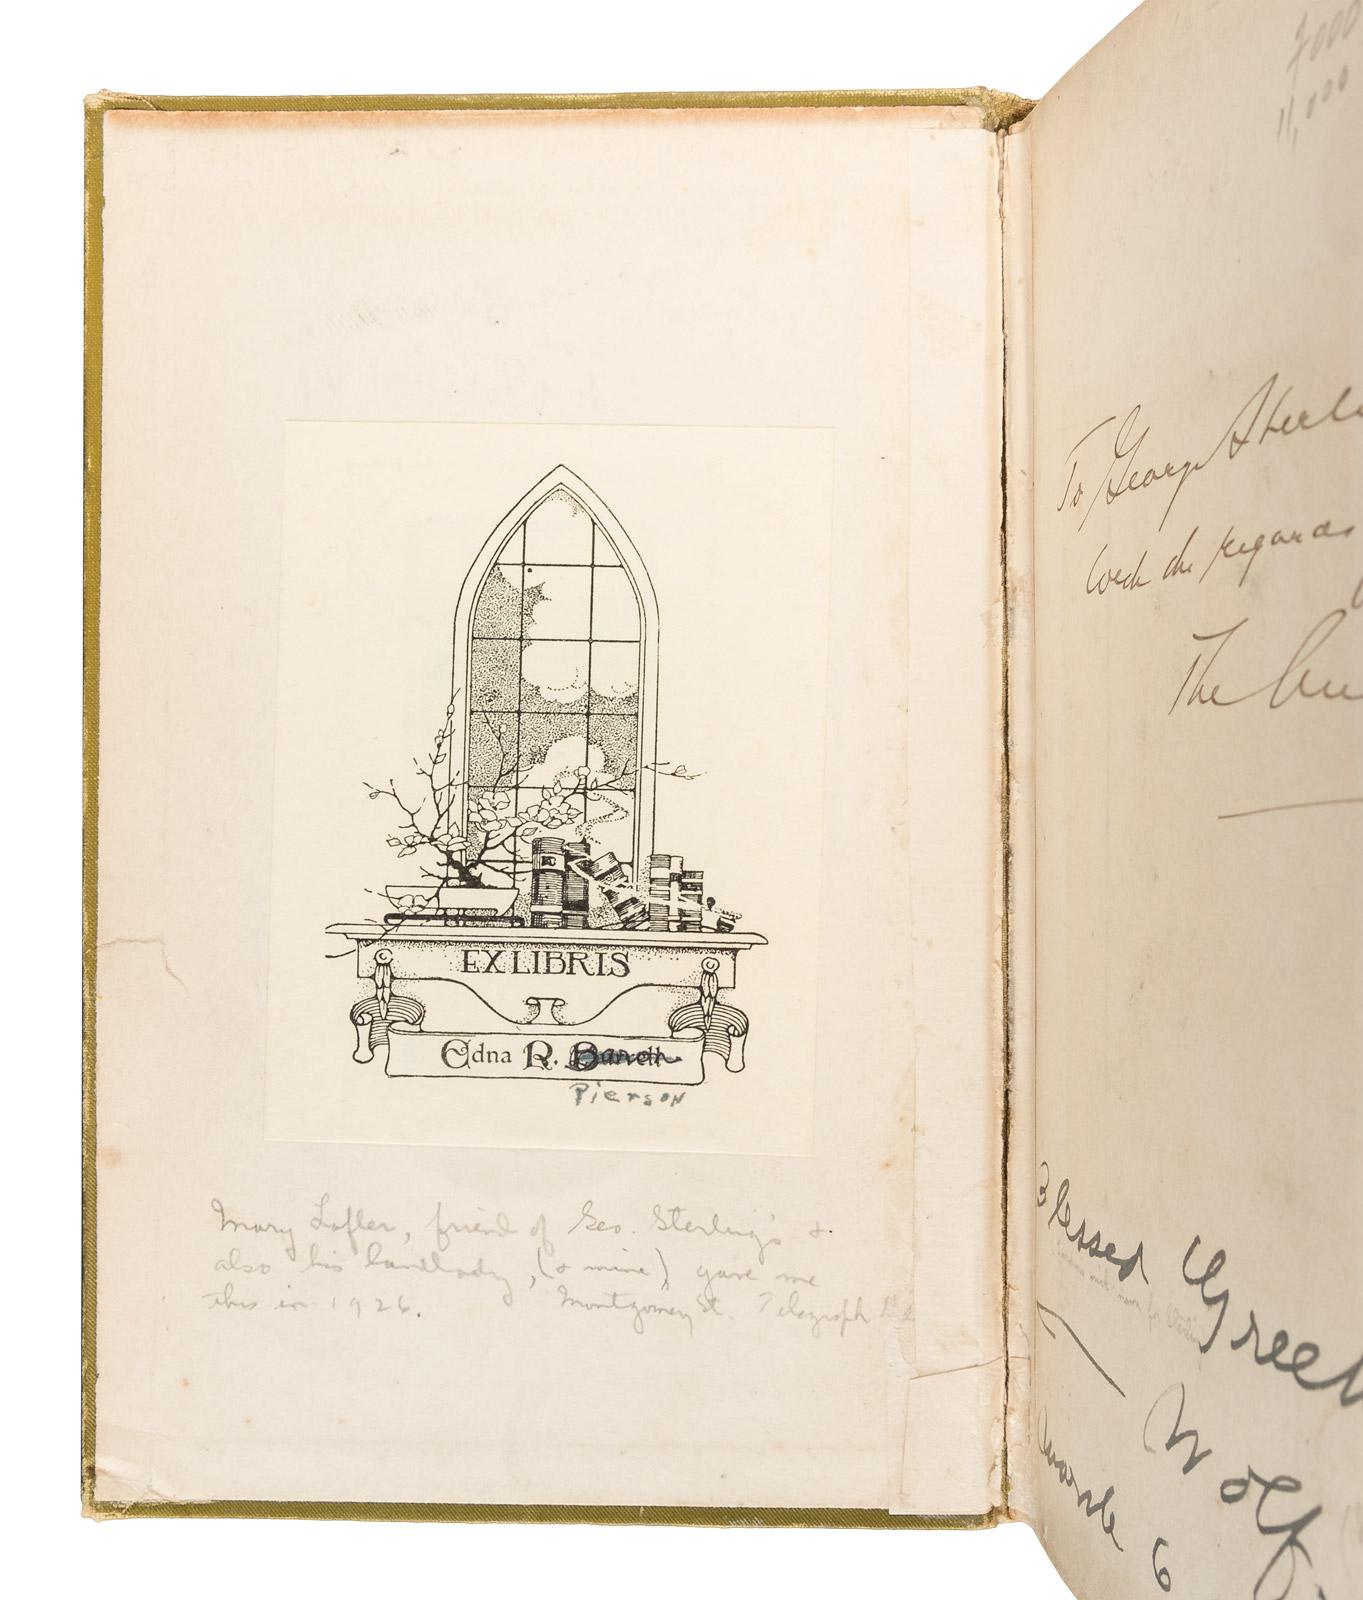 EX LIBRIS
Edna R.
Pierson
Mary Lafler, friend of Geo. Sterling's &
also his landlady, (& mine), gave me
this in 1926. Montgomery St. Telegraph
7000
11,000
To George Sterli
with the regards
The
Blessed Greet
Wolf
6